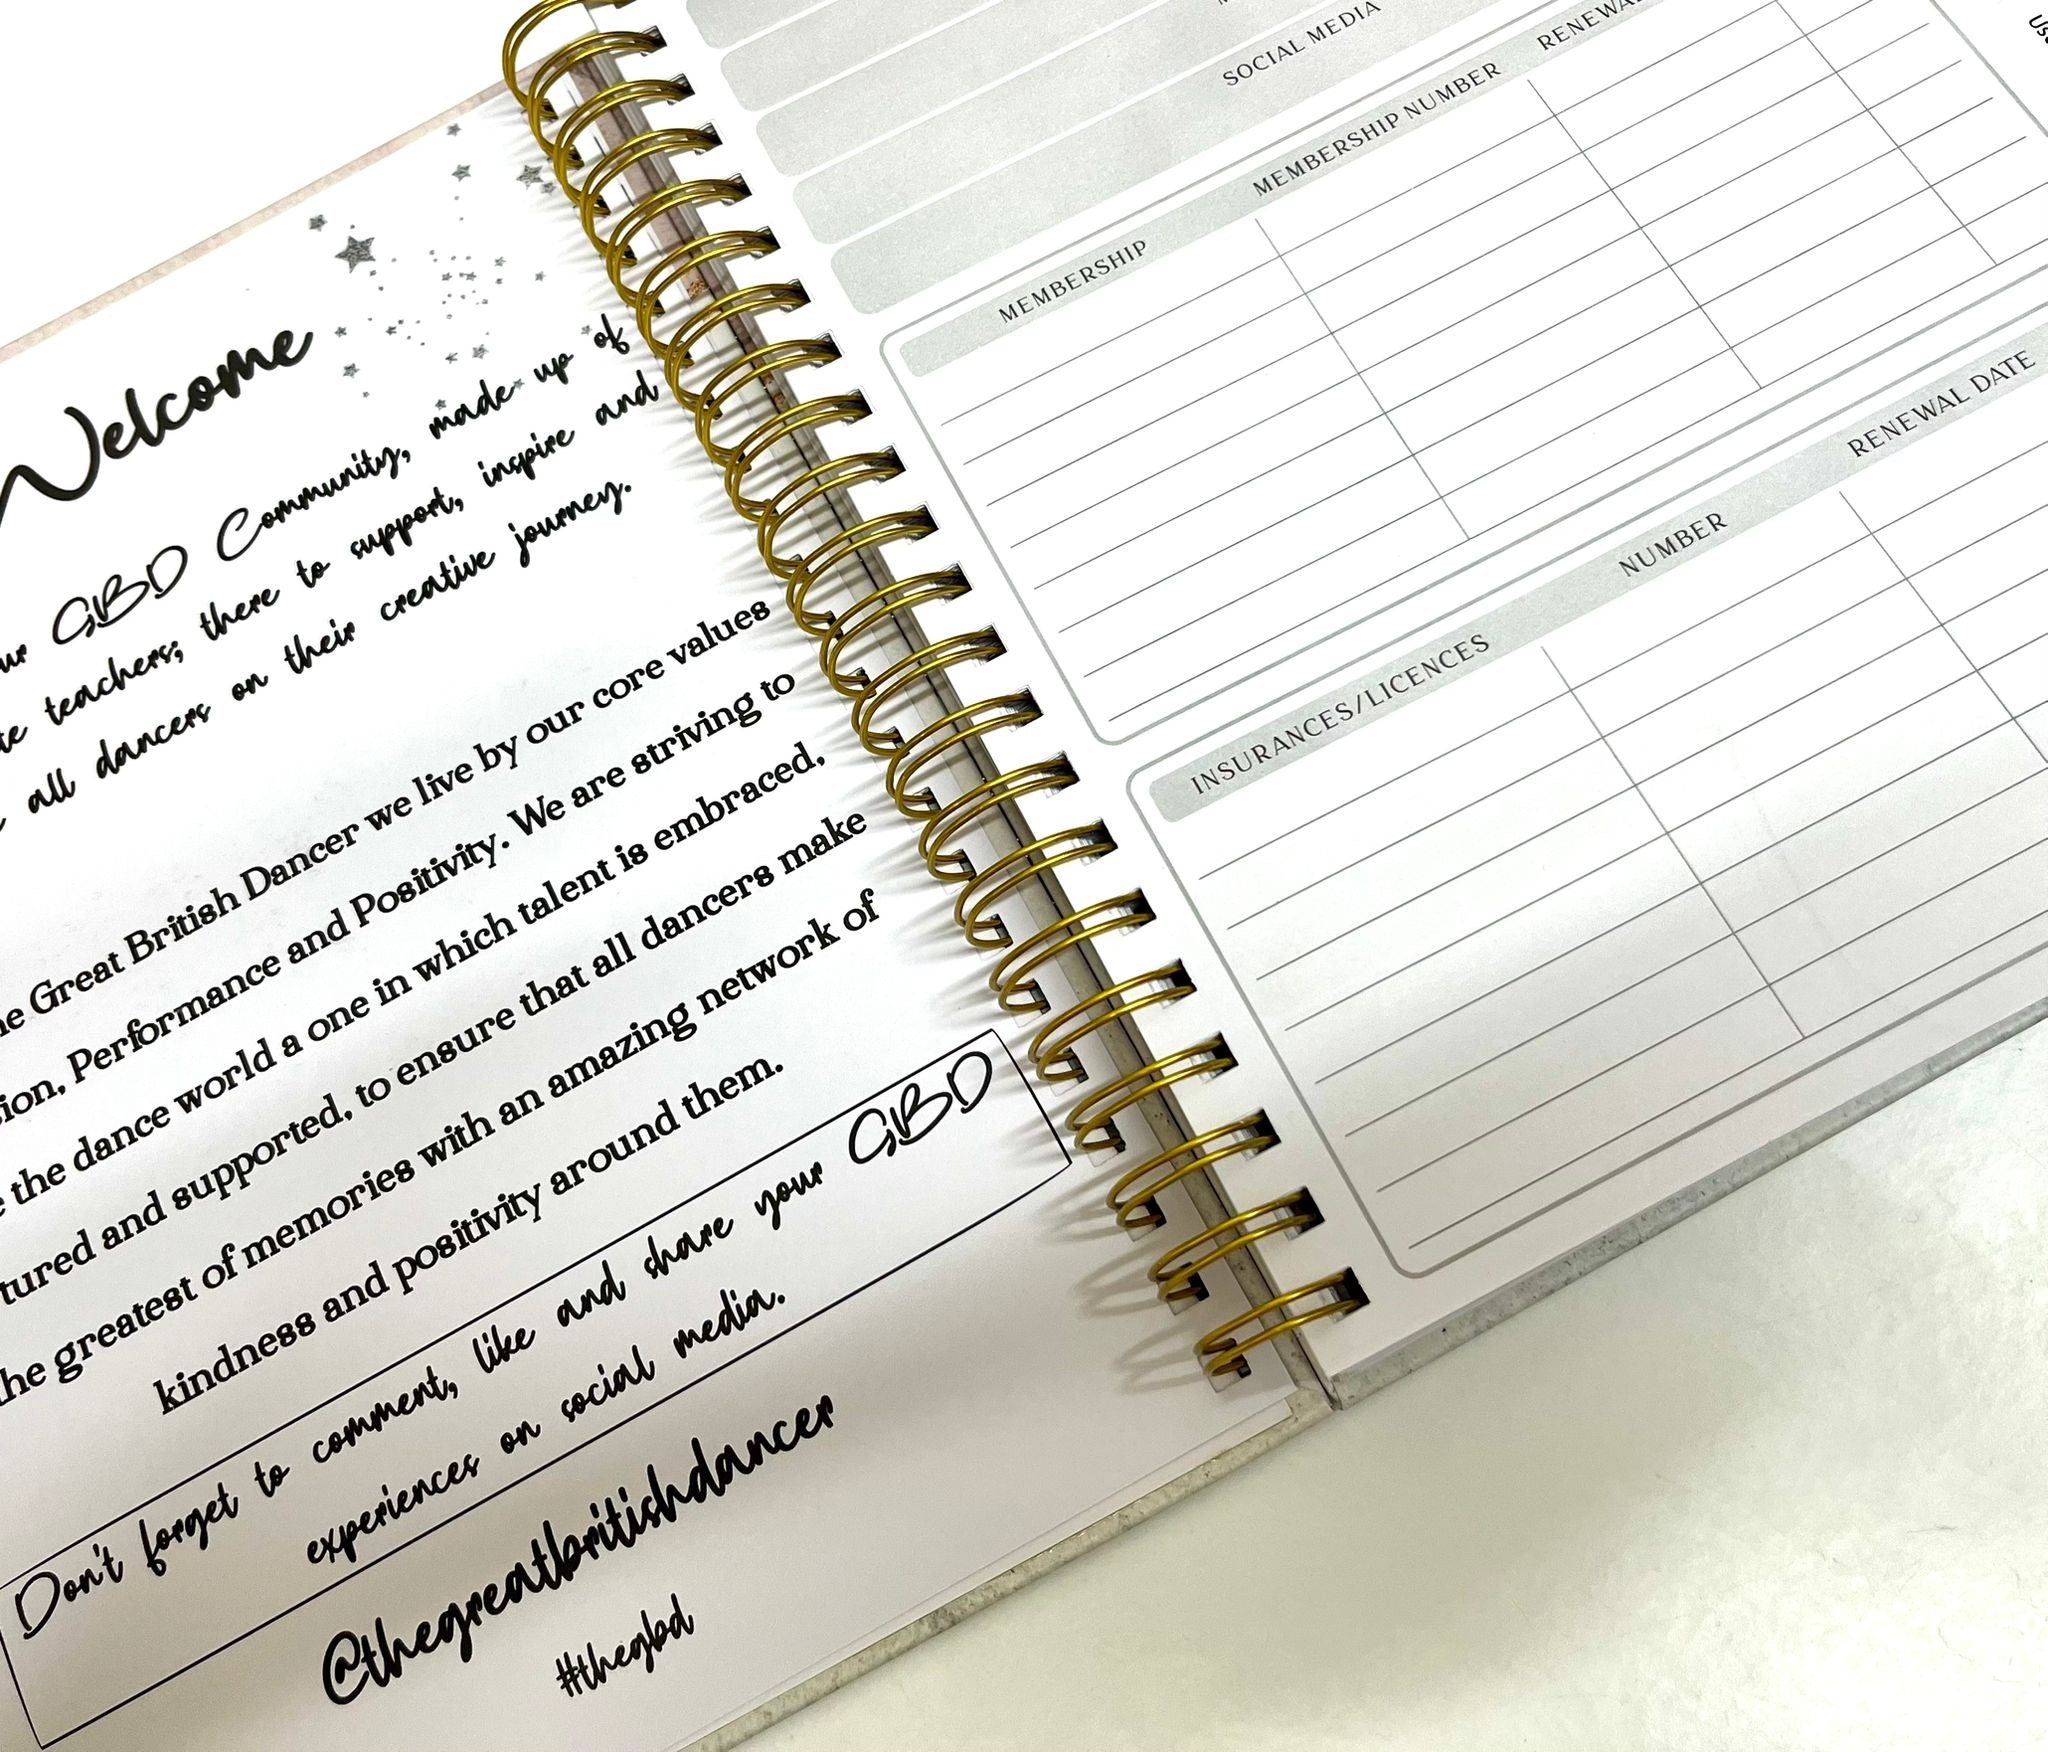 Welcome
GBD Community, made up of
teachers; there to support, inspire and
all dancers on their creative journey.
Great British Dancer we live by our core values
Performance and Positivity. We are striving to
the dance world a one in which talent is embraced,
and supported, to ensure that all dancers make
greatest of memories with an amazing network of
kindness and positivity around them.
Don't forget to comment, like and share your GBD
experiences on social media.
@thegreatbritishdancer
#thegbd
SOCIAL MEDIA
MEMBERSHIP MEMBERSHIP NUMBER RENEWAL
INSURANCES/LICENCES NUMBER RENEWAL DATE